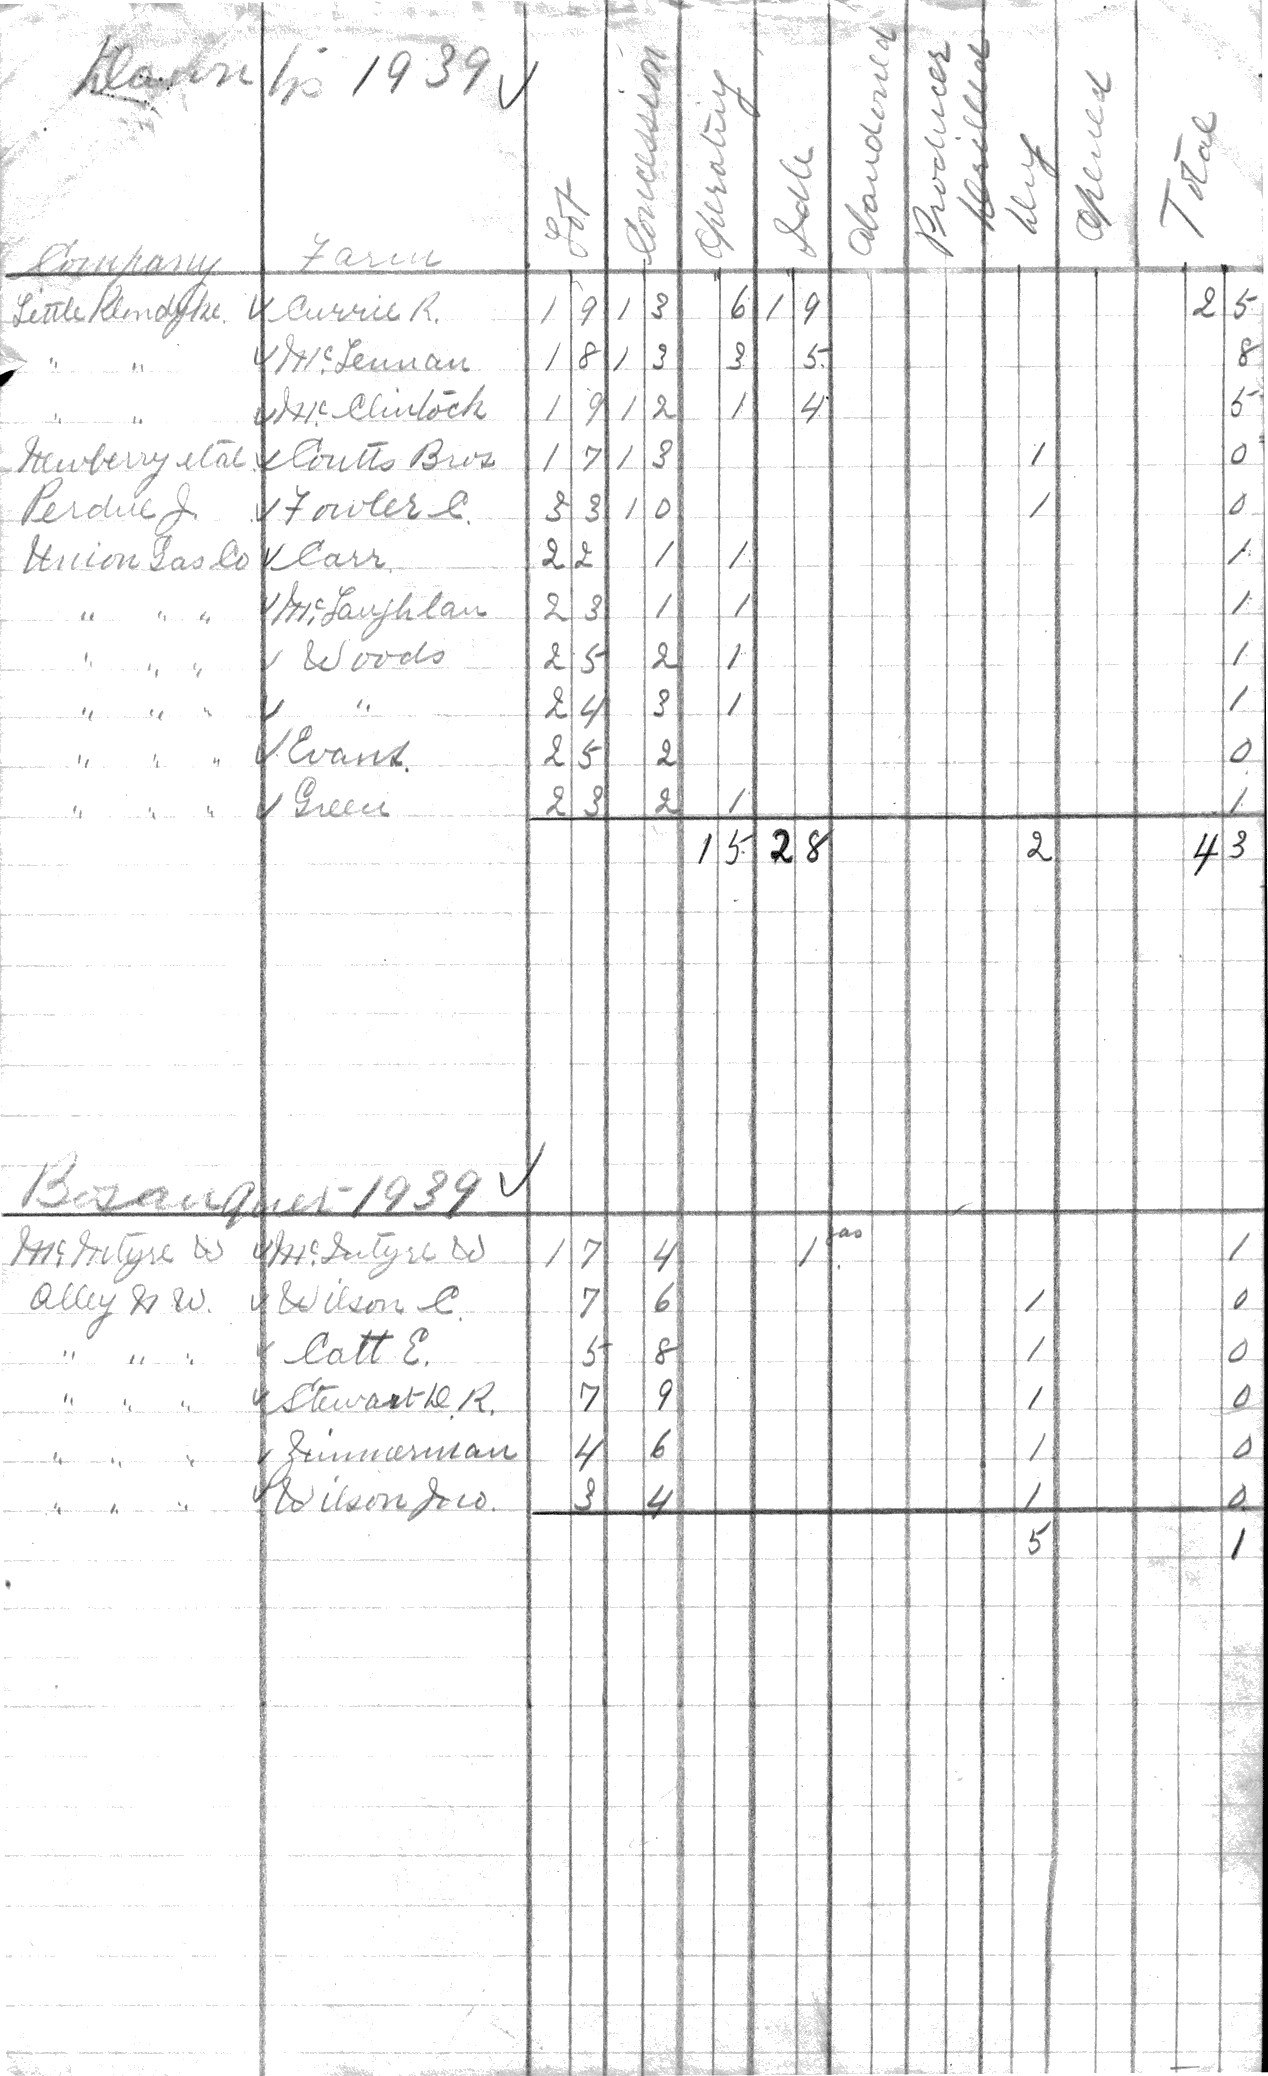 Dawn Tp 1939 ✓
Company Farm Lot Concession Operating Idle Abandoned Producer Drilled Dry Opened Total
Little Klondyke. ✓ Currie R. 19 13 6 19 25
" " ✓ Mc.Lennan 18 13 3 5 8
" " ✓ Mc. Clintock 19 12 1 4 5
Newberry et al ✓ Coutts Bros 17 13 1 0
Perdue J. ✓ Fowler C. 33 10 1 0
Union Gas Co ✓ Carr. 22 1 1 1
" " " ✓ Mc.Laughlan 23 1 1 1
" " " ✓ Woods 25 2 1 1
" " " ✓ " 24 3 1 1
" " " ✓ Evans. 25 2 0
" " " ✓ Green 23 2 1 1
15 28 2 43
Bosanquet 1939 ✓
Mc.Intyre W ✓ Mc.Intyre W 17 4 1 gas 1
Alley W. ✓ Wilson C. 7 6 1 0
" " " ✓ Catt E. 5 8 1 0
" " " ✓ Stewart D.R. 7 9 1 0
" " " ✓ Zimmerman 4 6 1 0
" " " ✓ Wilson Jno. 3 4 1 0
5 1